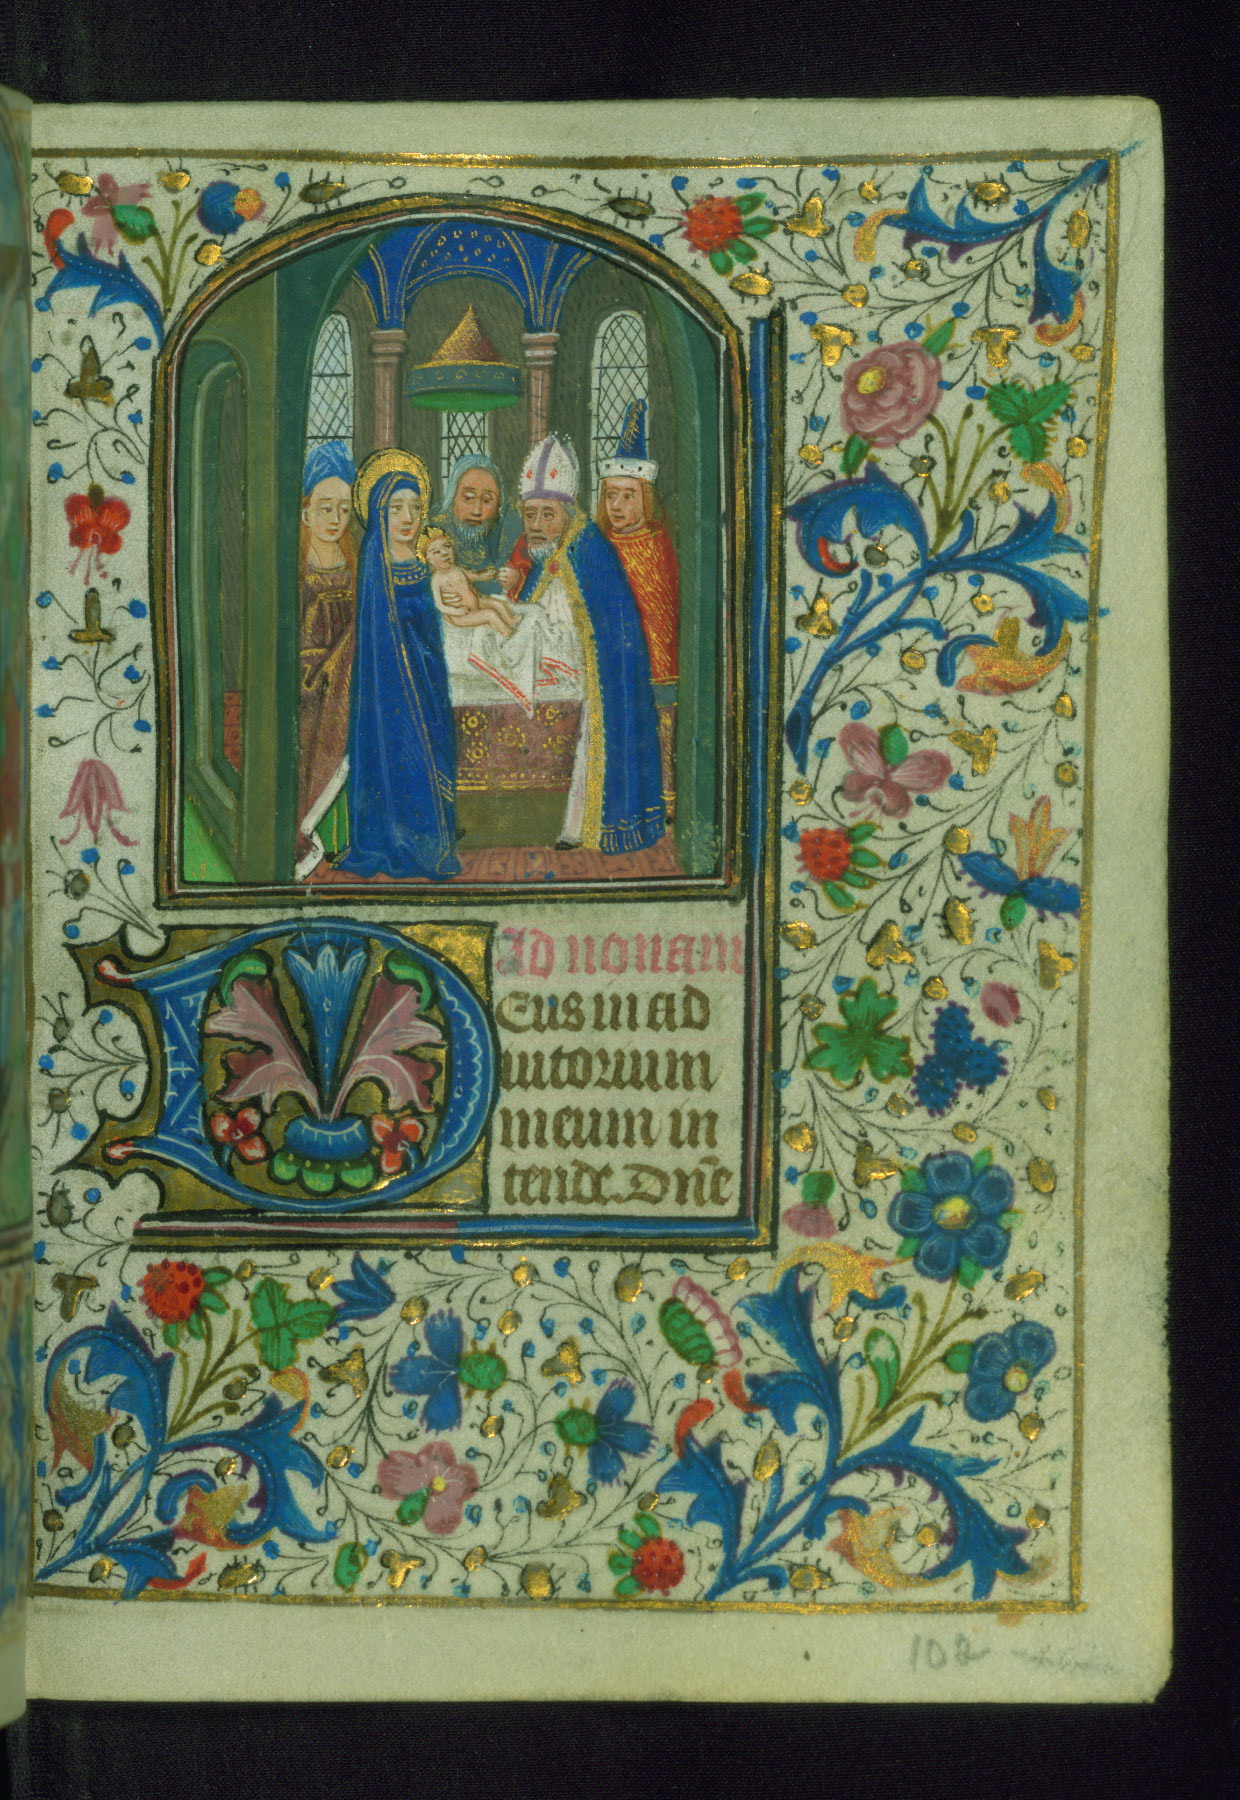 Ad nonam
Deus in ad
iutorium
meum in
tende. Dn̄e
102